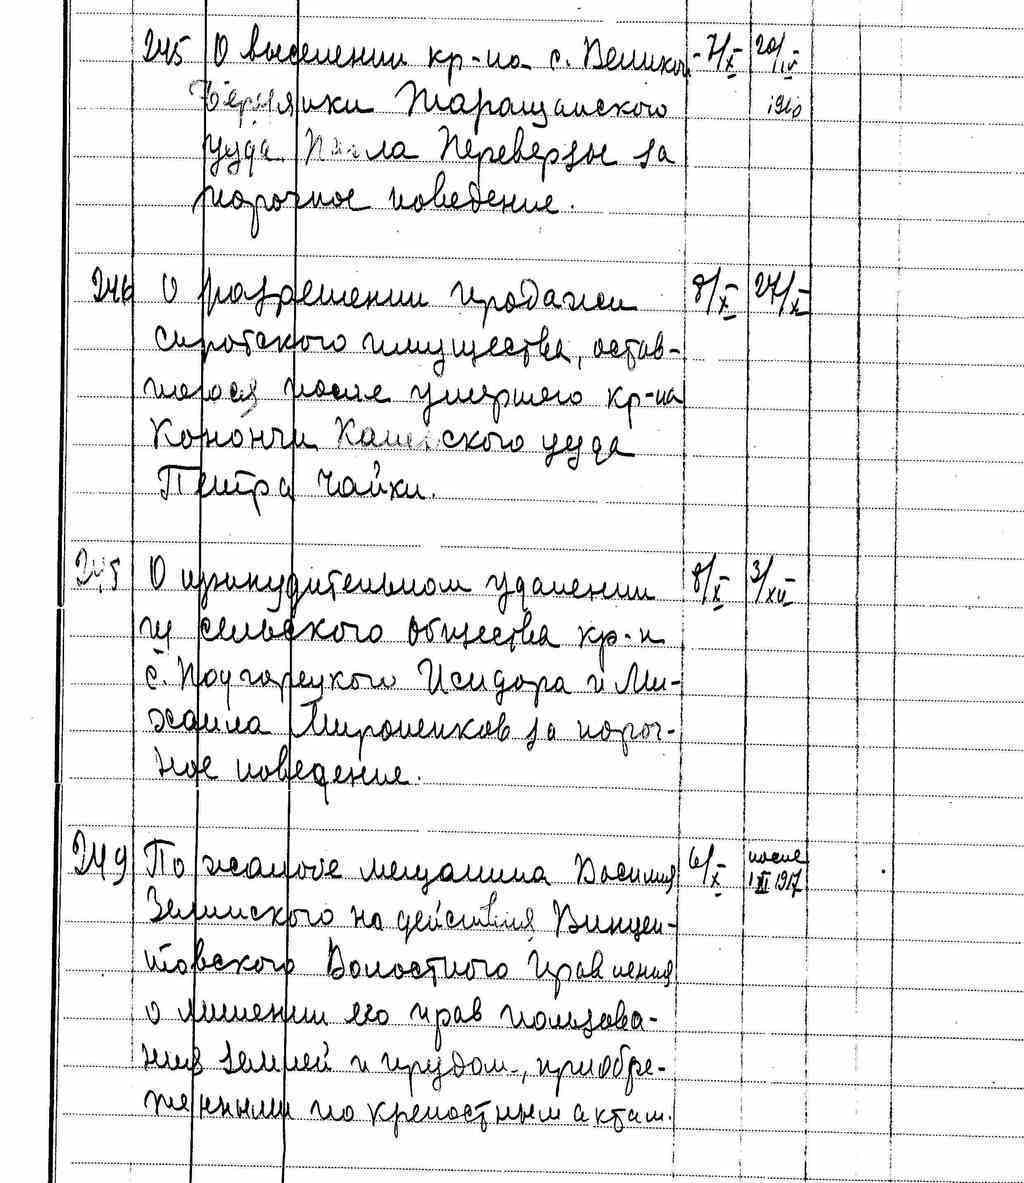 245 О выселении кр-на с. Велико 7/X 20/IV
Таращанского 1910
уезда Павла Перевερзы за
порочное поведение.
246 О разрешении продажи 8/X 27/X
сиротского имущества, остав-
шегося после умершего кр-на
Конончи Каневского уезда
Петра Чайки.
О принудительном удалении 8/X 3/XII
из сельского общества кр-н
с. Подгорецкого Исидора и Ми-
хаила Мироненков за пороч-
ное поведение.
249 По жалобе мещанина Василия 6/X после
Зелинского на действия Винцен- 1 III 1917
товского Волостного Правления
о лишении его прав пользова-
ния землей и прудом, приобре-
тенными по крепостным актам.